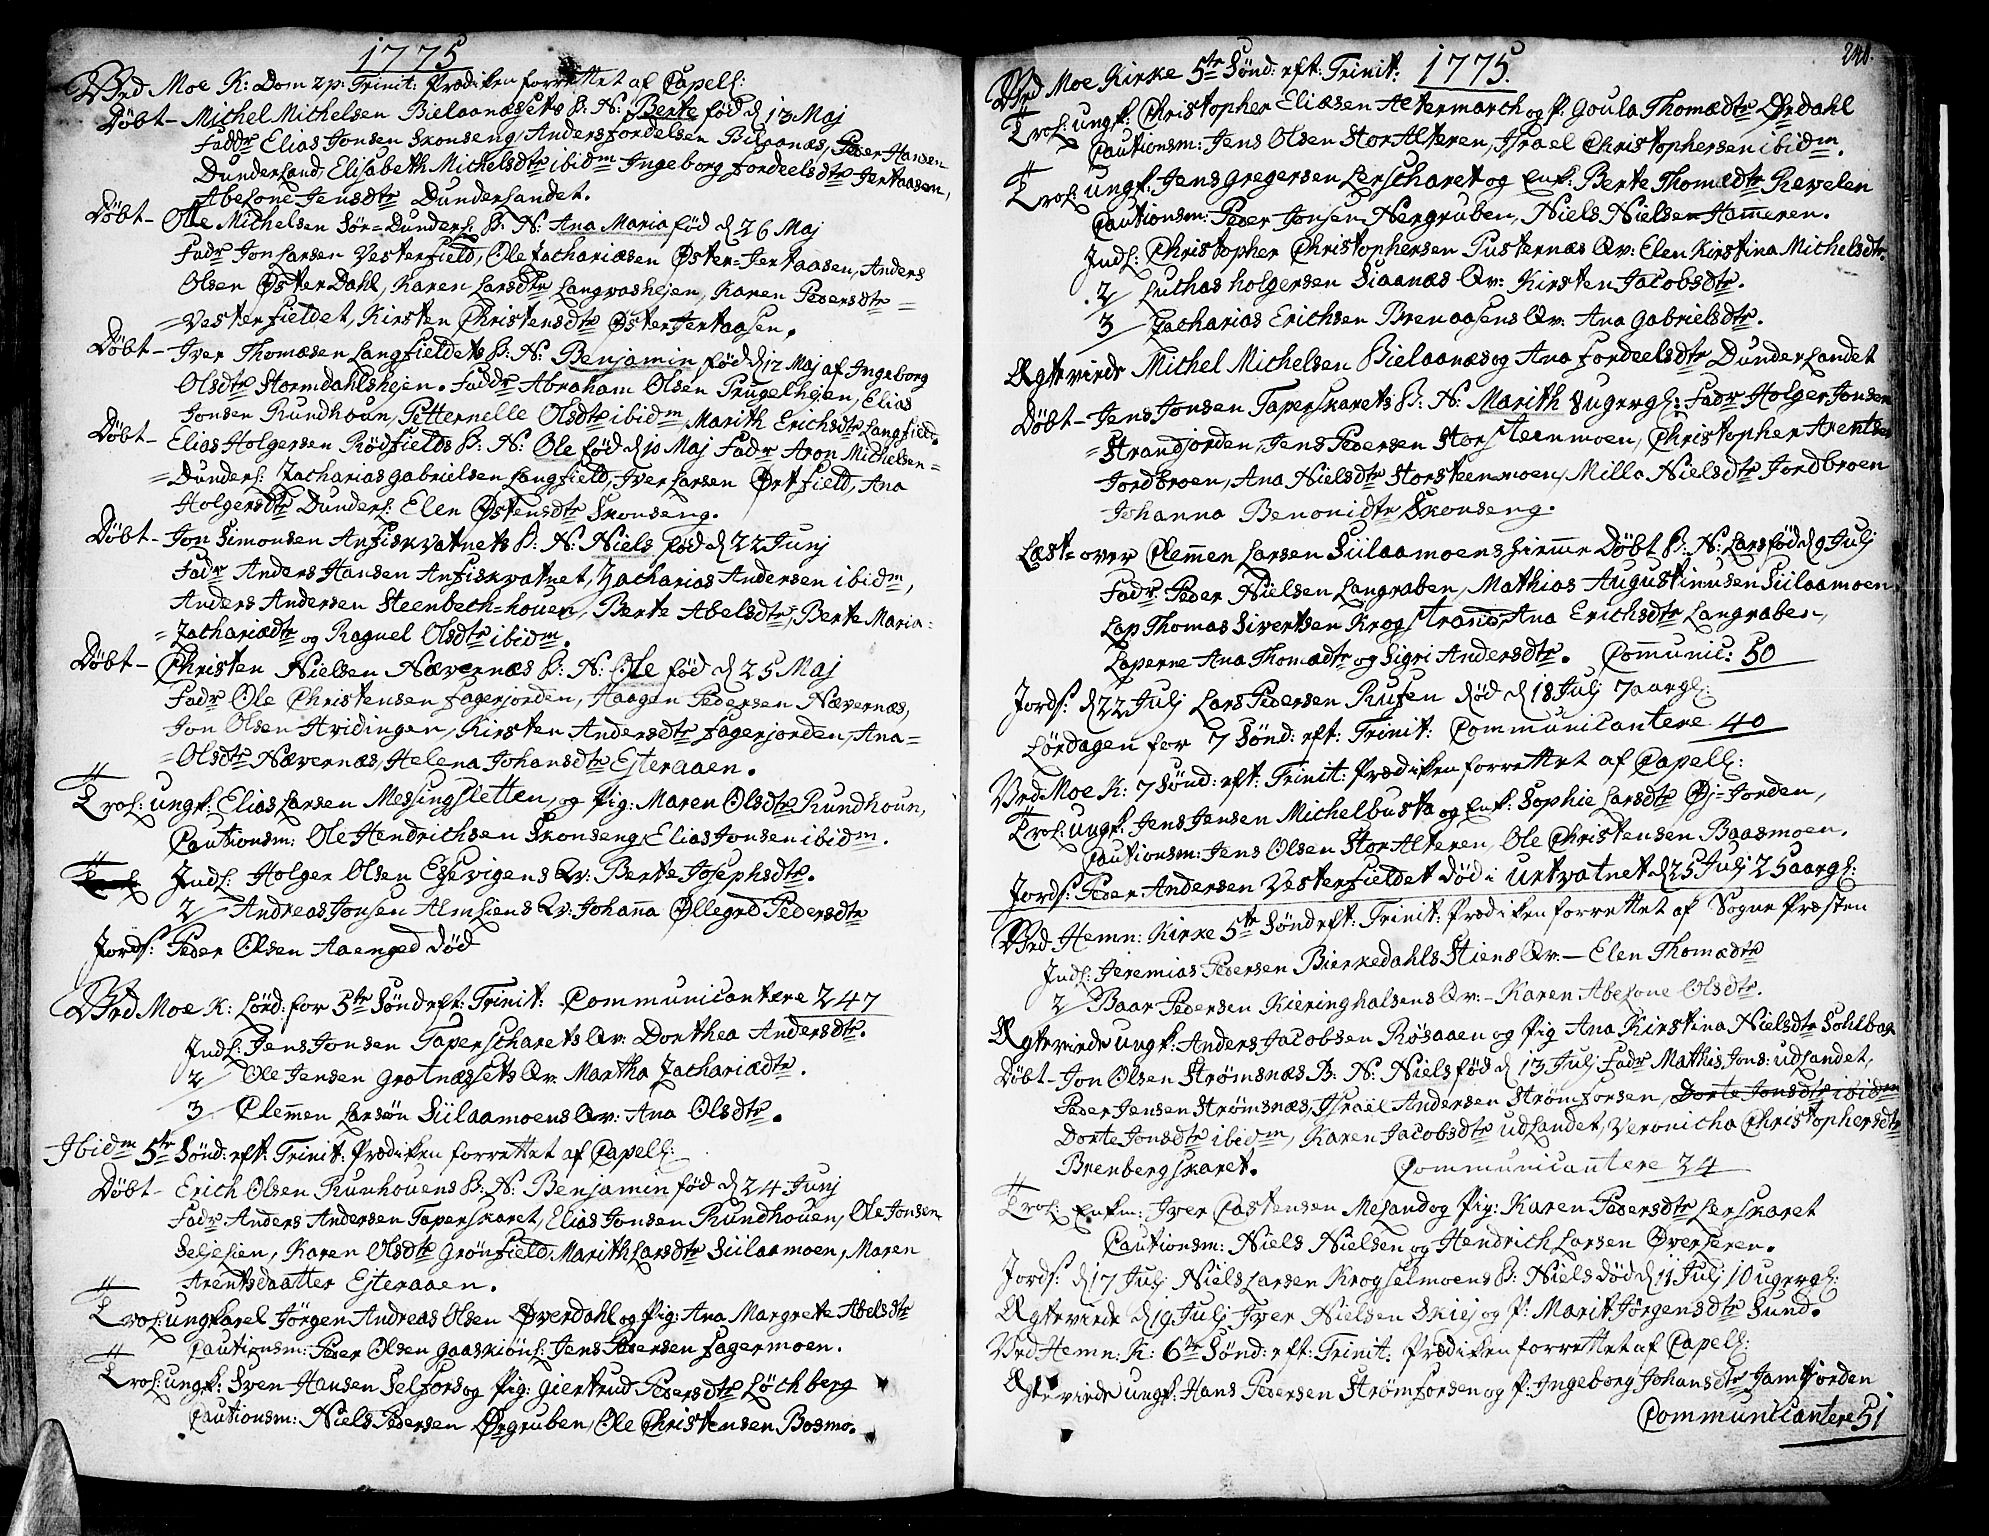 1775
Wed Moe K: Dom 2 p: Trinit: Prædiken forrettet af Capell:
Døbt - Michel Michelsen Bielaanæsets B: N: Berte fød d 13 Maj
Faddr Elias Jonsen Skonseng, Anders fordelsen Bielaanæs, Peder Hansen
Dunderland, Elisabeth Michelsdtr ibidm Ingeborg fordeelsdtr Jertaasen,
Abelone Jensdtr Dunderlandet.
Døbt - Olle Michelsen Sør=Dunderl: B: N: Ana Maria fød d 26 Maj
Fadr Jon Larsen Vesterfield, Ole Zachariæsen Øster=Jertaasen, Anders
Olsen Øster Dahl, Karen Larsdtr Langvashejen, Karen Pedersdtr =
=Vesterfieldet, Kirsten Christensdtr Øster Jertaasen.
Døbt - Iver Thomæsen Langfieldets B: N: Benjamin fød d 12 Maj af Ingeborg
Olsdtr Stormdahlshejen. Faddr Abraham Olsen Prugelhejen, Elias
Jonsen Rundhoun, Petternelle Olsdtr ibidm, Marith Erichsdtr Langfield.
Døbt - Elias Holgersen Rødfields B: N: Ole fød d 10 Maj Fadr Aron Michelsen =
=Dunderl: Zacharias Gabrielsen Langfield, Iver Larsen Ørtfield, Ana
Holgersdtr Dunderl: Elen Østensdtr Skonseng.
Døbt - Jon Simonsen Anfiskvatnets B: N: Niels fød d 22 Junj
Fadr Anders Hansen Anfiskvatnet, Zacharias Andersen ibidm,
Anders Andersen Steenbech=houen, Berte Abelsdtr, Berte Maria =
=Zachariædtr og Raguel Olsdtr ibidm.
Døbt - Christen Nielsen Nævernæs B: N: Ole fød d 25 Maj
Fadr Ole Christensen Fagerjorden, Haagen Pedersen Nævernæs,
Jon Olsen Hvidingen, Kirsten Andersdtr Fagerjorden, Ana =
=Olsdtr Nævernæs, Helena Johansdtr Ejteraaen.
Trol: ungk: Elias Larsen Messingsletten, og Pig: Maren Olsdtr Rundhoun,
Cautionsm: Ole Hendrichsen Skonseng, Elias Jonsen ibidm.
Indl: Holger Olsen Esevigens Qv: Berte Josephsdtr.
2/ Andreas Jonsen Almliens Qv: Johana Øllegrd Pedersdtr
Jords: Peder Olsen Aaenget død
Wed Moe K: Lørd: for 5te Sønd eft: Trinit: Communicantere 247
Indl: Jens Jonsen Taperscharets Qv: Dorthea Andersdtr.
2/ Ole Jensen Grotnæssets Qv: Martha Zachariædtr.
3 Clemen Larsøn Siilaamoens Qv: Ana Olsdtr.
Ibidm 5te Sønd: eft: Trinit: Prædiken forrettet af Capell:
Døbt - Erich Olsen Runhouens B: N: Benjamin fød d 24 Junj
Fadr Anders Andersen Taperskaret, Elias Jonsen Rundhouen, Ole Jonsen
Seljelien, Karen Olsdtr Grønfield, Marith Larsdtr Siilaamoen, Maren
Arentsdaatter Ejteraaen.
Trol: ungkarel Jørgen Andreas Olsen Øverdahl og Pig: Ana Margrete Abelsdtr
Cautionsm: Peder Olsen Gaaskiøns: Jens Pedersen Fagermoen.
Trol: ungk: Sven Hansen Selfors og Pig: Giertrud Pedersdtr Løchberg
Cautionsm: Niels Pedersen Ørgruben, Ole Christensen Bosmo.
240
Wed Moe Kirke 5te Sønd: eft: Trinit: 1775.
Trol: ungk: Christopher Eliæsen Altermarch og P: Goula Thomædtr Ørdahl
Cautionsm: Jens Olsen Stor Alteren, Israel Christophersen ibidm.
Trol: ungk: Jens Gregersen Lerscharet og Enk: Berte Thomædtr Revelen
Cautionsm: Peder Jonsen Nergruben, Niels Nielsen Hameren.
Indl: Christopher Christophersen Pusternæs Qv: Elen Kirstina Michelsdtr.
2/ Luthas Holgersen Siaanæs Qv: Kirsten Jacobsdtr.
3/ Zacharias Erichsen Brenaasens Qv: Ana Gabrielsdtr.
Ægteviede Michel Michelsen Bielaanæs og Ana Fordeelsdtr Dunderlandet
Døbt - Jens Jonsen Taperskarets B: N: Marith 8 ugergl: Fadr Holger Jonsen
=Strandjorden, Jens Pedersen Storsteenmoen, Christopher Arentsen
Jordbroen, Ana Nielsdtr Storsteenmoen, Milla Nielsdtr Jordbroen
Johanna Benonidtr Skonseng.
Læst=over Clemen Larsen Siilaamoens hieme Døbt B: N: Lars fød d 9 Julj
Fadr. Peder Nielsen Langraben, Mathias Augustinusen Siilaamoen,
Lap Thomas Sivertsen Krogstrand, Ana Erichsdtr Langraben,
Laperne Ana Thomædtr og Sigri Andersdtr. Comunic: 50
Jords: d 22 Julj Lars Pedersen Rufsen død d 18 Julj 7 aargl:
Lørdagen for 7 Sønd: eft: Trinit: Communicantere 40
Wed Moe K: 7 Sønd: eft: Trinit: Prædiken forrettet af Capell:
Trol: ungk: Jens Jensen Michelbusta og Enk: Sophie Larsdtr Øj=Jorden,
Cautionsm: Jens Olsen Stor Alteren, Ole Christensen Baasmoen.
Jords: Peder Andersen Vesterfieldet død i Urtvatnet d 25 Julj 25 aargl:
Wed Hemn: Kirke 5te Sønd eft: Trinit: Prædiken forrettet af Sogne Præsten
Indl: Jeremias Pedersen Bierkedahls Stiens Qv: - Elen Thomædtr
2/ Baar Pedersen Kieringhalsens Qv: - Karen Abelone Olsdtr.
Ægteviede ungk: Anders Jacobsen Røsaaen og Pig Ana Kirstina Nielsdtr Sohlbag
Døbt - Jon Olsen Strømsnæs B: N: Niels fød d 13 Julj Fadr Mathis Jons: udlandet,
Peder Jensen Strømsnæs, Israel Andersen Strømforsen, Dorte Jonsdtr ibidm
Dorte Jonsdtr ibidm, Karen Jacobsdtr udlandet, Veronicha Christophersdtr
Brenbergskaret. Communicantere 24
Trol: Enkm: Iver Castensen Meland og Pig: Karen Pedersdtr Lerskaret
Cautionsm: Niels Nielsen og Hendrich Larsen Øverleren.
Jords: d 17 Julj Niels Larsen Krogselmoens B: Niels død d 11 Julj 10 ugergl:
Ægteviede d 19 Julj Iver Nielsen Skiej og P: Marit Jørgensdtr Sund.
Wed Hemn: K: 6te Sønd: eft: Trinit: Prædiken forrettet af Capell:
Ægteviede ungk: Hans Pedersen Strømforsen og P: Ingeborg Johansdtr Jamtjorden
Communicantere 51